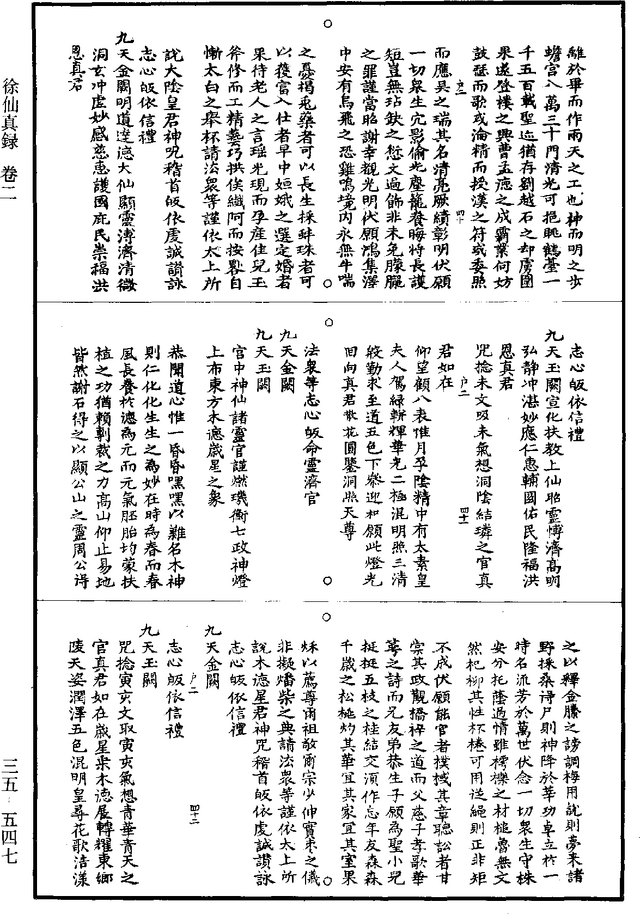 維於畢而作雨天之工也神而明之步
蟾宮八萬三千門清光可挹眺鶴臺一
千五百載聖迹猶存劉越石之却虜圍
果遂登樓之興曹孟德之成霸業何妨
鼓瑟而歌或淪精而授漢之符或委照
而應吳之瑞其名清亮厥績彰明伏願
一切衆生完影偷光塵籠養晦特長護
短豈無玷缺之愆文過飾非未免朦朧
之罪謹當昭謝幸覩光明伏願鴻集澤
中安有烏飛之恐雞鳴境內永無牛喘
之憂楊兎藥者可以長生採蚌珠者可
以獲官入仕者早中姮娥之選定婚者
果待老人之言瑶光現而孕產佳兒玉
斧修而工精藝巧拱俟纖阿而按轡自
慚太白之舉杯請法衆等謹依太上所
說大陰皇君神呪稽首皈依虔誠讃詠
志心皈依信禮
九天金闕明道達德大仙顯靈溥濟清微
洞玄冲虛妙感慈惠護國庇民崇福洪
恩真君
志心皈依信禮
九天玉闕宣化扶教上仙昭靈博濟高明
弘靜冲湛妙應仁惠輔國佑民隆福洪
恩真君
呪捻未文吸未氣想洞陰結璘之官真
君如在
仰望顧八表惟月孚陰精中有太素皇
夫人駕綠輧輝華充二極混明照三清
殷勤求至道五色下參迎和願此燈光
回向真君散花圓鑒洞照天尊
法衆等志心皈命靈濟官
九天金闕
九天玉闕
官中神仙諸靈官謹燃璣衡七政神燈
上布東方木德歲星之象
恭聞道心惟一昏昏嘿嘿以難名木神
則仁化化生生之為妙在時為春而春
風長養於德為元而元氣胚胎均蒙扶
植之功猶賴剸裁之力高山仰止易地
皆然謝石得之以顯公山之靈周公禱
之以釋金縢之謗調梅用說則夢來諸
野採桑得尸則神降於莘功卓立於一
時名流芳於萬世伏念一切衆生守株
安分托蔭過情雖樗櫟之材植魯無文
然杞柳其性杯棬可用送繩則正非矩
不成伏願能官者樸棫其章聽訟者甘
棠其政觀橋梓之道而父慈子孝歌華
萼之詩而兄友弟恭生子願為聖小兒
挺挺五枝之桂結交須作忘年友森森
千歲之松桃灼其華宜其家宜其室果
秌以薦尊爾祖敬爾宗少伸實棗之儀
非擬燔柴之典請法衆等謹依太上所
說木德星君神呪稽首皈依虔誠讃詠
志心皈依信禮
九天金闕
志心皈依信禮
九天玉闕
呪捻寅亥文取寅亥氣想青華青天之
官真君如在歲星乘木德展轉耀東鄉
陵天姿潤澤五色混明皇尋花歌浩漾
徐仙真録 卷二
三五-五四七